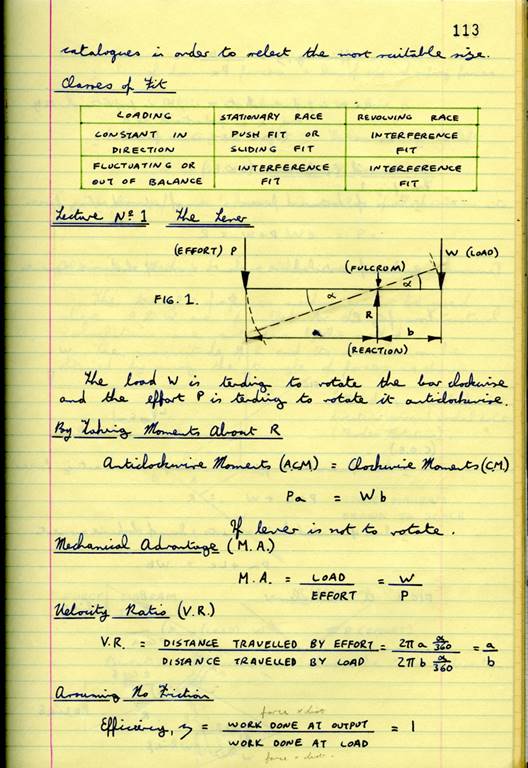 113
catalogues in order to select the most suitable size.
Classes of Fit
LOADING STATIONARY RACE REVOLVING RACE
CONSTANT IN DIRECTION PUSH FIT OR SLIDING FIT INTERFERENCE FIT
FLUCTUATING OR OUT OF BALANCE INTERFERENCE FIT INTERFERENCE FIT
Lecture Nº 1 The Lever
(EFFORT) P W (LOAD)
(FULCRUM)
FIG. 1. α α
R
a b
(REACTION)
The load W is tending to rotate the bar clockwise
and the effort P is tending to rotate it anticlockwise.
By Taking Moments About R
Anticlockwise Moments (A.C.M.) = Clockwise Moments (C.M.)
Pa = Wb
If lever is not to rotate.
Mechanical Advantage (M.A.)
M.A. = LOAD / EFFORT = W / P
Velocity Ratio (V.R.)
V.R. = DISTANCE TRAVELLED BY EFFORT / DISTANCE TRAVELLED BY LOAD = 2πa α/360 / 2πb α/360 = a / b
Assuming No Friction
force × dist
Efficiency, η = WORK DONE AT OUTPUT / WORK DONE AT LOAD = 1
force × dist.